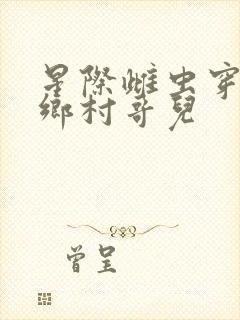 星際雌虫穿
鄉村哥兒
曾呈